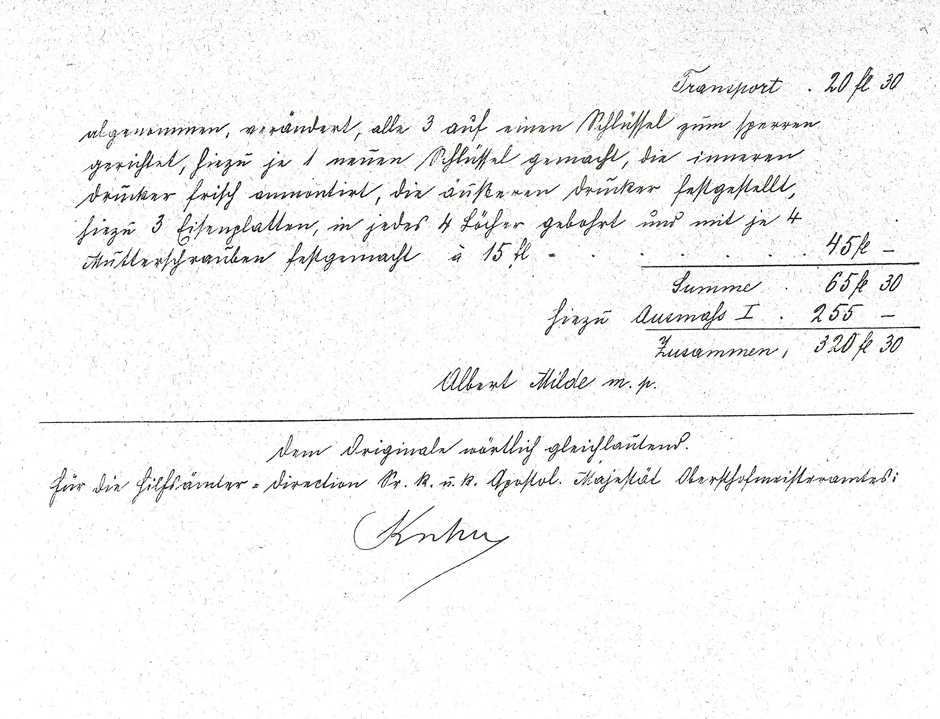 Transport . 20 fl 30
abgenommen, verändert, alle 3 auf einen Schlüssel zum sperren
gerichtet, hiezu je 1 neuen Schlüssel gemacht, die inneren
Drücker frisch anmontirt, die äußeren Drücker festgestellt,
hiezu 3 Eisenplatten, in jedes 4 Löcher gebohrt und mit je 4
Mutterschrauben festgemacht à 15 fl - . . . . . . 45 fl –
Summe . 65 fl 30
hiezu Ausmaß I . 255 –
Zusammen, 320 fl 30
Albert Milde m. p.
Dem Originale wörtlich gleichlautend.
Für die Hilfsämter-Direction Sr. k. u. k. Apostol. Majestät Obersthofmeisteramtes: